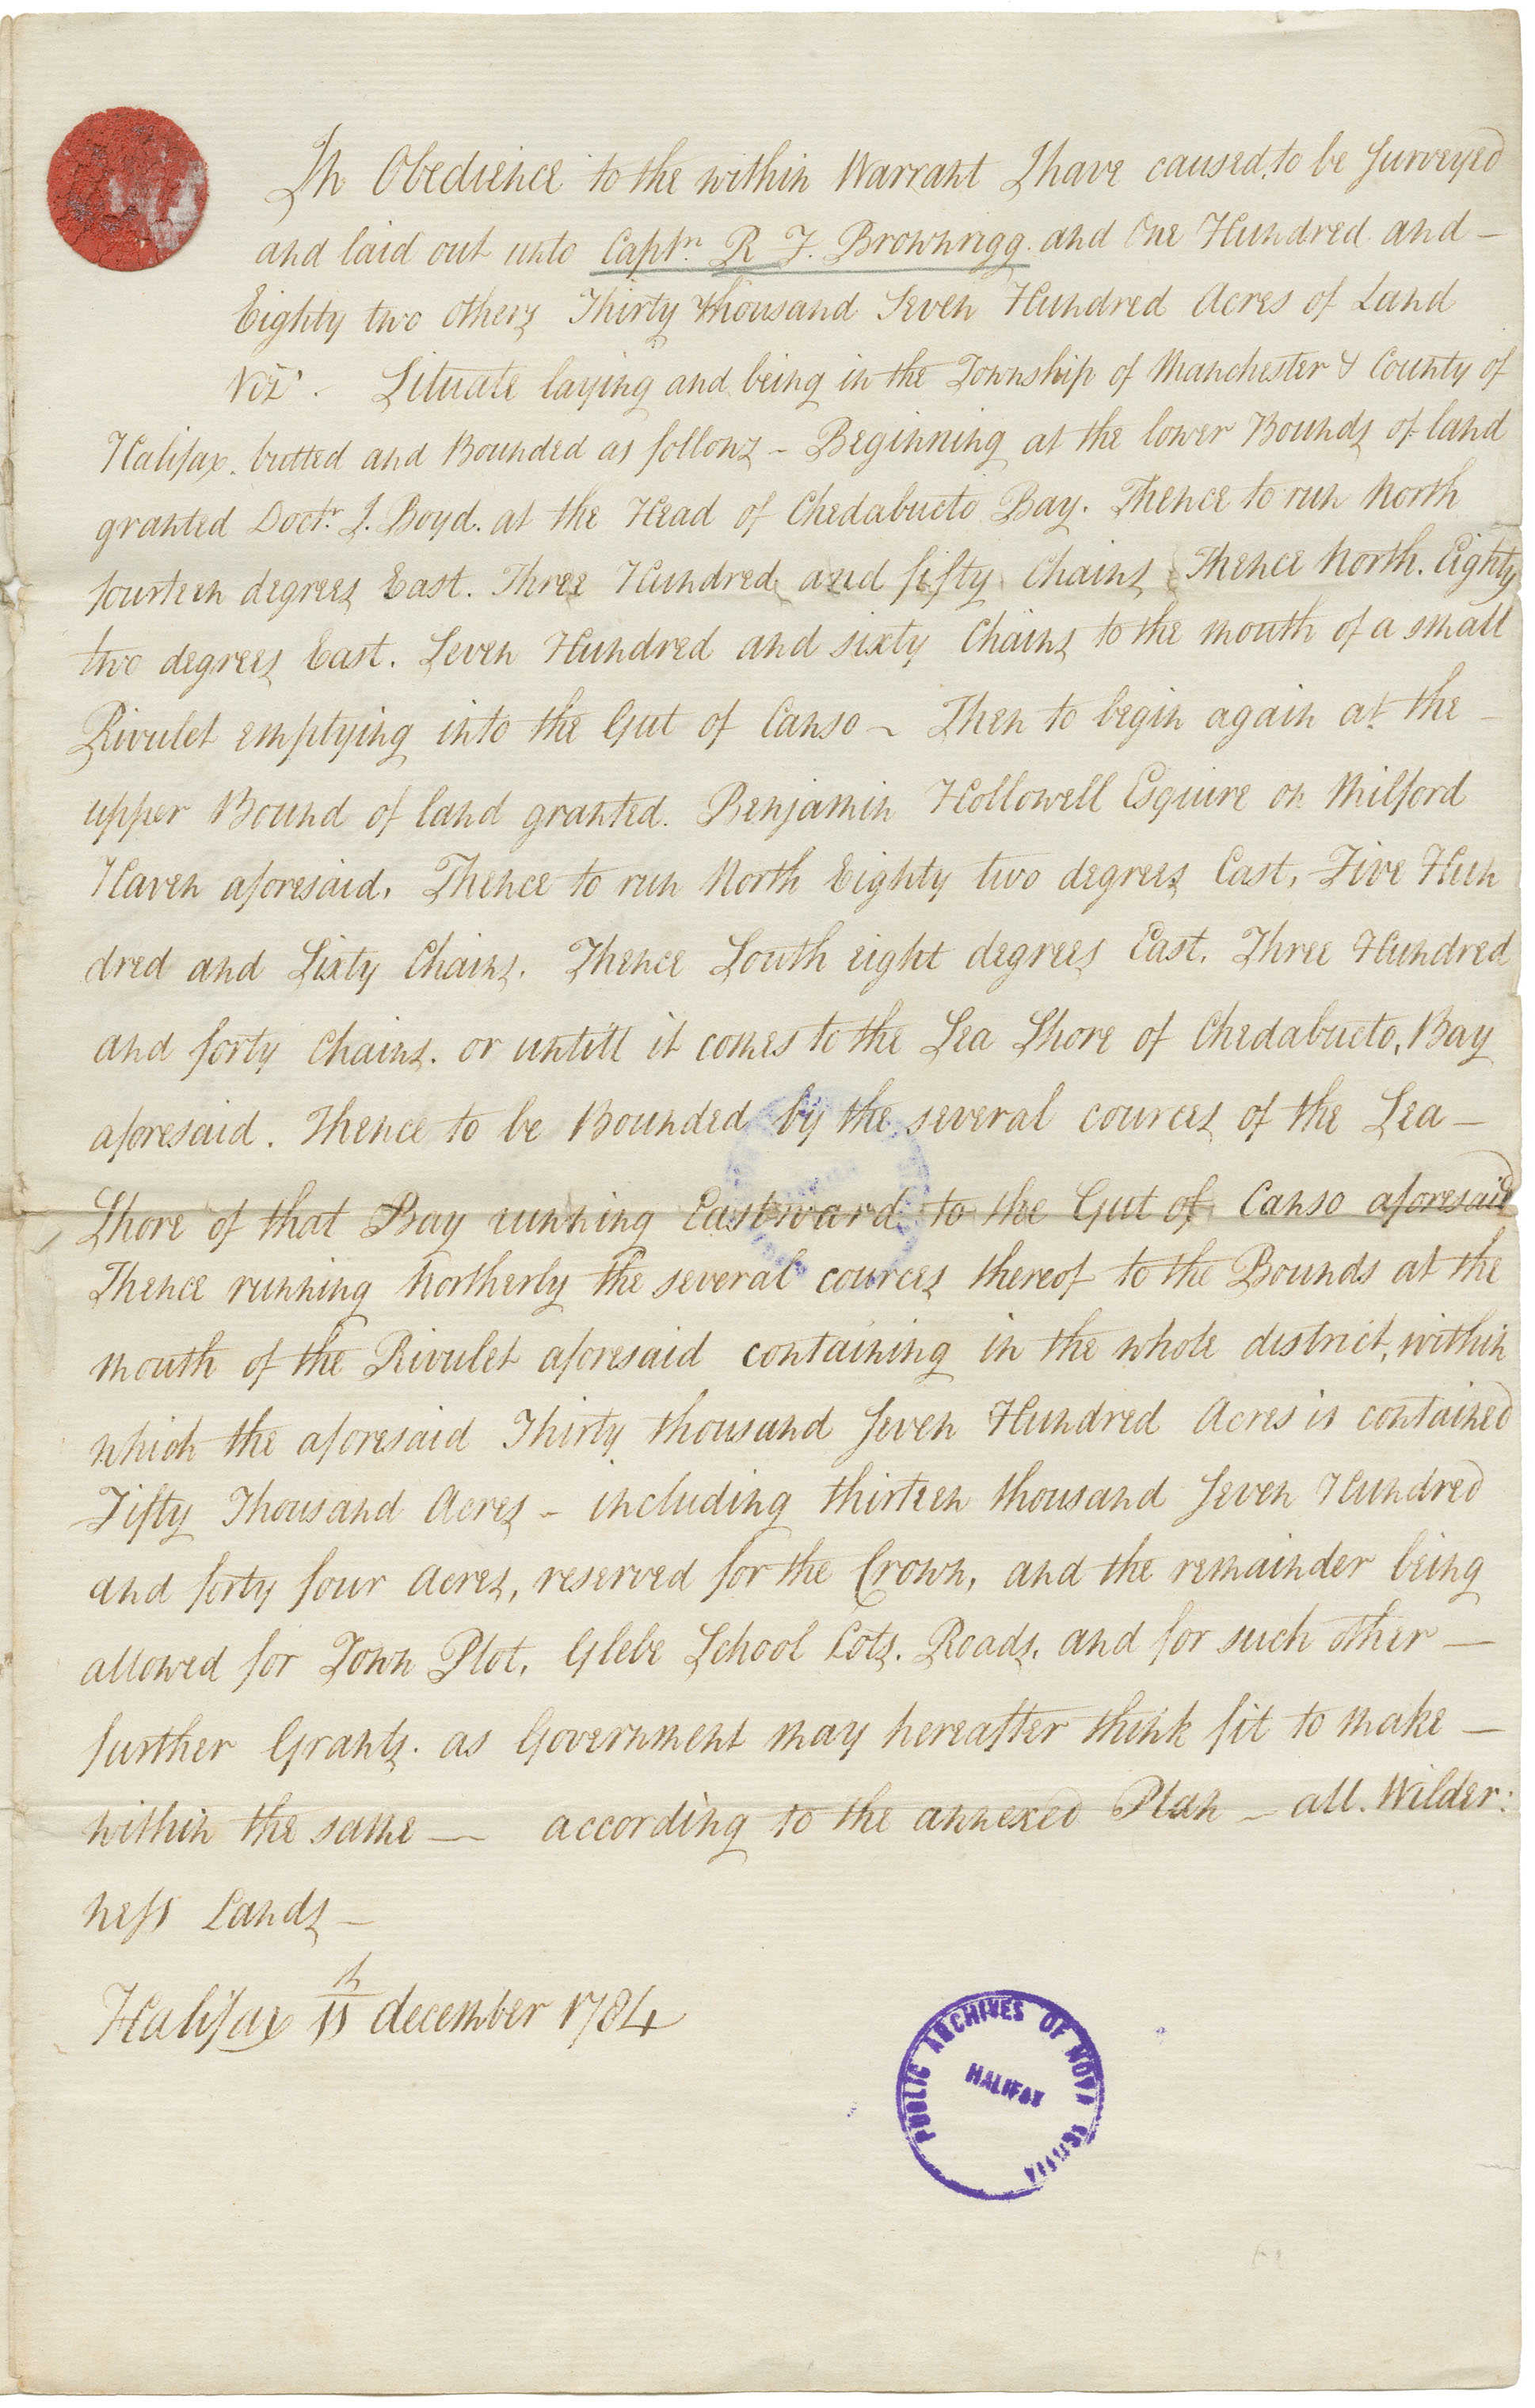 In Obedience to the within Warrant I have caused, to be Surveyed
and laid out unto Captn. R F. Brownrigg. and One Hundred and —
Eighty two others Thirty thousand Seven Hundred Acres of Land
Viz. Situate laying and being in the Township of Manchester & County of
Halifax. butted and Bounded as follows - Beginning at the lower Bounds of land
granted Doctr. J. Boyd. at the Head of Chedabucto Bay. Thence to run North
fourteen degrees East. Three Hundred and fifty Chains Thence North. Eighty
two degrees East. Seven Hundred and sixty Chains to the mouth of a small
Rivulet emptying into the Gut of Canso ~ Then to begin again at the —
upper Bound of land granted. Benjamin Hollowell Esquire on Milford
Haven aforesaid, Thence to run North Eighty two degrees East, Five Hun
dred and Sixty Chains. Thence South eight degrees East. Three Hundred
and forty Chains. or untill it comes to the Sea Shore of Chedabucto, Bay
aforesaid. Thence to be Bounded by the several cources of the Sea —
Shore of that Bay running Eastward to the Gut of Canso aforesaid
Thence running Northerly the several cources thereof to the Bounds at the
mouth of the Rivulet aforesaid containing in the whole district, within
which the aforesaid Thirty thousand Seven Hundred Acres is contained
Fifty Thousand Acres - including thirteen thousand Seven Hundred
and forty four Acres, reserved for the Crown, and the remainder being
allowed for Town Plot, Glebe School Lots. Roads, and for such other —
further Grants. as Government may hereafter think fit to make —
within the same — according to the annexed Plan — all. Wilder:
ness Lands —
Halifax 11th december 1784
PUBLIC ARCHIVES OF NOVA SCOTIA
HALIFAX